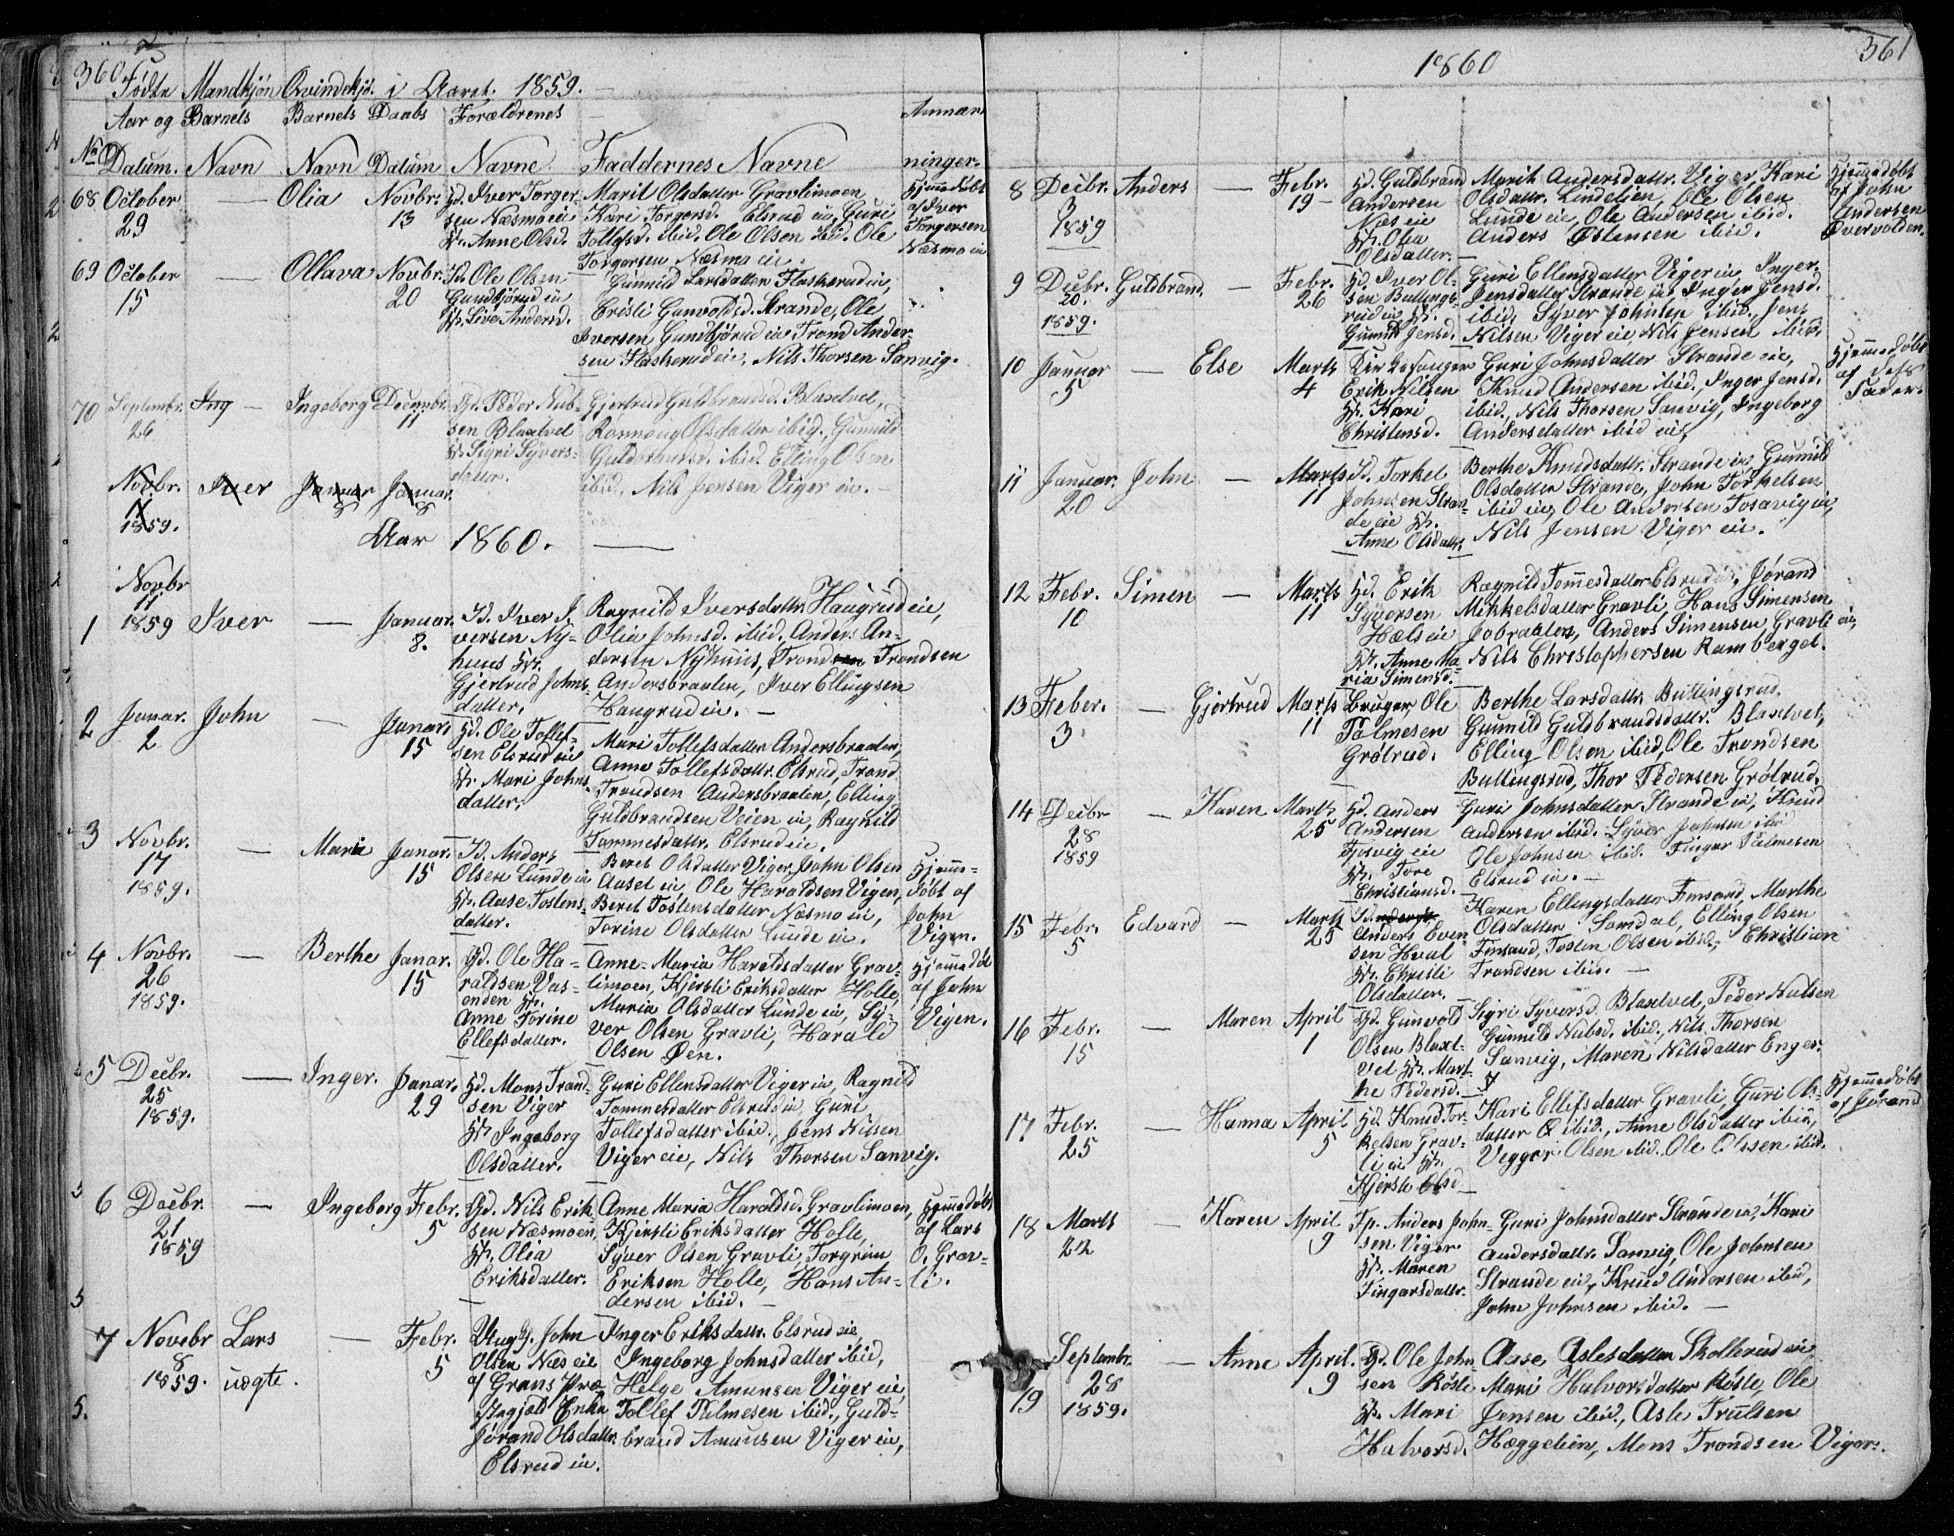 360
Födte Mandkjön Qvindekjö. i Aaret. 1859.
Aar og Barnets Barnets Daabs Forældrenes Anmær-
No Datum. Navn Navn Datum Navne. Faddernes Navne ninger.
68 October 29 — Olia Novbr. 13 Gd. Iver Torger-
sen Næsmo eie
Hr. Anne Olsd.
Marit Olsdatter Gravlimoen,
Kari Torgersd. Elsrud eie, Guri
Tollefsd. ibid. Ole Olsen ibid. Ole
Torgersen Næsmo eie.
Hjemmedöbt
af Iver
Torgersen
Næsmo eie
69 October 15 — Ollava Novbr. 20 Id. Ole Olsen
Gundbjörud eie
Hr. Live Andersd.
Gunnild Larsdatter Flaskerud eie,
Cristi Gunvoldsd. Strande, Ole
Iversen Gundbjörud eie Trond Ander-
sen Flaskerud eie, Nils Thorsen Sanvig.
70 Septembr. 26 Ing — Ingeborg Decembr. 11 Gd. Peder Nub-
sen Blaxlvet
Hr. Sigri Syvers-
datter.
Gjertrud Guldbrandsd. Blaxlvet,
Rannoug Olsdatter ibid. Gunnild
Guldbrandsd. ibid. Elling Olsen
ibid. Nils Jensen Viger eie. —
Novbr. 11 1859. Iver Januar 8 Januar. 8
Aar 1860. —
1 Novbr 11 1859 Iver — Januar. 8. Id. Iver I-
versen Ny-
huus Hr.
Gjertrud Johns-
datter.
Ragnild Iversdattr. Haugrud eie,
Olia Johnsd. ibid. Anders An-
dersen Nyhuus, Trondsen Trondsen
Andersbraaten, Iver Ellingsen
Haugrud eie. —
2 Janar. 2 John — Janar. 15 Gd. Ole Tollef-
sen Elsrud eie
Hr. Mari Johns-
datter.
Mari Tollefsdatter Andersbraaten,
Anne Tollefsdattr. Elsrud, Trond
Trondsen Andersbraaten, Elling
Guldbrandsen Veien eie, Ragnild
Tommesdattr. Elsrud eie.
3 Novbr. 17 1859. — Maria Janar. 15 Id. Anders
Olsen Lunde eie
Hr. Aase Tostens-
datter.
Beret Olsdatter Viger, John Olsen
Aaset eie, Ole Haraldsen Vigen,
Beret Tostensdatter Næsmo eie,
Torine Olsdatter Lunde eie.
Hjemme-
döbt af
John
Vigen.
4 Novbr. 26 1859. — Berthe Janar. 15 Gd. Ole Ha-
raldsen Vas-
enden Hr.
Anne Torine
Ellefsdatter.
Anne-Maria Haraldsdatter Grav-
limoen, Kjersti Eriksdatter Holle,
Maria Olsdatter Lunde eie, Sy-
ver Olsen Gravli, Harald
Olsen Öen.
Hjemmedöbt
af John
Vigen.
5 Decbr. 25 1859. — Inger. Janar. 29 Gd. Mons Trond-
sen Viger
Hr. Ingeborg
Olsdatter.
Guri Ellensdatter Viger eie, Ragnild
Tommesdatter Elsrud eie, Guri
Tollefsdatter ibid., Jens Nilsen
Viger eie, Nils Thorsen Sanvig.
6 Decbr. 21 1859 — Ingeborg Febr. 5 Gd. Nils Erik-
sen Næsmoen,
Hr. Olia
Eriksdatter.
Anne Maria Haraldsd. Gravlimoen,
Kjersti Eriksdatter Holle,
Syver Olsen Gravli, Torgrim
Eriksen Holle, Hans An-
dersen ibid. —
Hjemmedöbt
af Lars
O. Grav-
li.
7 Novebr 8 1859. Lars uægte. — Febr. 5 Ungk. John
Olsen Næs eie
af Grans Præ-
stegjeld Enke
Jörand Olsdattr.
Elsrud eie.
Inger Eriksdattr. Elsrud eie,
Ingeborg Johnsdatter ibid,
Helge Amunsen Viger eie,
Tollef Palmesen ibid., Guld-
brand Amunsen Viger eie,
1860
361
8 Decbr. 3 1859 Anders — Febr. 19 — Gd. Guldbrand
Andersen
Næs eie
Hr. Olia
Olsdatter. —
Marit Andersdattr. Viger, Kari
Olsdatr. Lindelien, Ole Olsen
Lunde eie, Ole Andersen ibid.
Anders Östensen ibid.
Hjemmedöbt
af John
Andersen
Övervolden.
9 Decbr. 20. 1859. Guldbrand. — Febr. 26 Gd. Iver Ol-
sen Buttings-
rud eie Hr.
Gunnild Jensd.
Guri Ellensdatter Viger eie, Inger
Jensdatter Strande eie, Inger Jensd.
ibid. Syver Johnsen ibid., Jens
Nilsen Viger eie, Nils Jensen ibid.
10 Januar 5 — Else Marts 4
Erik Nilsen
Hr. Kari
Christensd.
Guri Johnsdatter Strande eie,
Knud Andersen ibid, Inger Jensd.
ibid., Nils Thorsen Sanvig, Ingeborg
Andersdatter ibid eie,
Hjemmedöbt
af dets
Fader.
11 Januar. 20 John — Marts 11 Id. Torkel
Johnsen Stran-
de eie Hr.
Anne Olsdattr.
Berthe Knudsdattr. Strande eie, Gunnild
Olsdatter Strande, John Torkelsen
ibid eie, Ole Andersen Tosavig eie,
Nils Jensen Viger eie.
12 Febr. 10 Simen — Marts 11 Gd. Erik
Syversen
Hæls eie
Hr. Anne Ma-
ria Simensd.
Ragnild Tommesdatter Elsrud eie, Jörand
Mikkelsdatter Gravli, Hans Simensen
Jobraaten, Anders Simensen Gravli eie,
Nils Christophersen Ramberget.
13 Feber. 3 — Gjertrud Marts 11 Bruger, Ole
Palmesen
Grötrud.
Berthe Larsdattr. Buttingsrud,
Gunnild Guldbrandsdattr. Blaxlvet,
Elling Olsen ibid, Ole Trondsen
Buttingsrud, Thor Pedersen Grötrud.
14 Decbr 28 1859 — Karen Marts 25 Gd. Anders
Andersen
Tosvig eie
Hr. Tore
Christiansd.
Guri Johnsdatter Strande eie, Knud
Andersen ibid. Syver Johnsen ibid
Ole Johnsen ibid. Fingar Palmesen
Elsrud eie. —
15 Febr. 5 Edvard — Marts 25
Anders Even-
sen Hval
Hr. Christi
Olsdatter.
Karen Ellingsdatter Finsand, Marthe
Olsdatter Somdal, Elling Olsen
Finsand, Tosten Olsen ibid., Christian
Trondsen ibid. —
16 Febr. 15 — Maren April 1 Gd. Gunvold
Olsen Blaxl-
vet Hr. Mart-
he Pedersd. —
Sigri Syversd. Blaxlvet, Peder Nubsen
Gunnild Nubsd. ibid., Nils Thorsen
Sanvig, Maren Nilsdatter Enger.
17 Febr. 25 — Hanna April 5 Gd. Knud Tor-
kelsen Grav-
li eie Hr.
Kjersti Olsd —
Kari Ellefsdatter Gravli, Guri Ols-
datter ibid., Anne Olsdatter ibid,
Veggar Olsen ibid. Ole Olssen ibid.
Hjemmedöbt
af Jörand
18 Marts 22 — Karen April 9 Fp. Anders John-
sen Viger
Hr. Maren
Fingarsdattr.
Guri Johnsdatter Strande eie, Kari
Andersdattr. Sanvig, Ole Johnsen
Strande eie, Knud Andersen ibid,
John Johnsen ibid. —
19 Septembr. 28 1859. — Anne April. 9 Gd. Ole John-
sen Rösle
Hr. Mari
Halvorsd.
Aase Aslesdatter Skollerud eie
Mari Halvorsdatter Rösle, Ole
Jensen ibid., Asle Trulsen
Hæggelien, Mons Trondsen Viger.